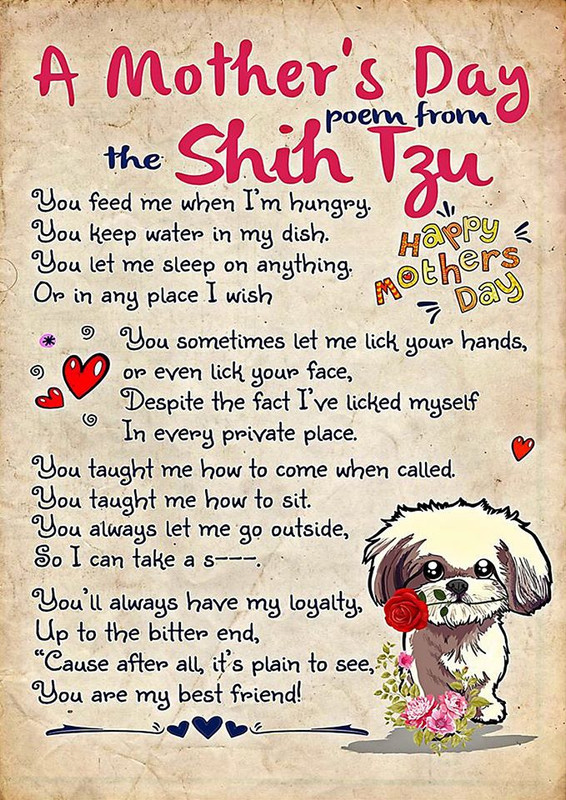 A Mother's Day
poem from
the Shih Tzu
You feed me when I'm hungry.
You keep water in my dish.
You let me sleep on anything.
Or in any place I wish
Happy
Mothers
Day
You sometimes let me lick your hands,
or even lick your face,
Despite the fact I've licked myself
In every private place.
You taught me how to come when called.
You taught me how to sit.
You always let me go outside,
So I can take a s---.
You'll always have my loyalty,
Up to the bitter end,
“Cause after all, it's plain to see,
You are my best friend!